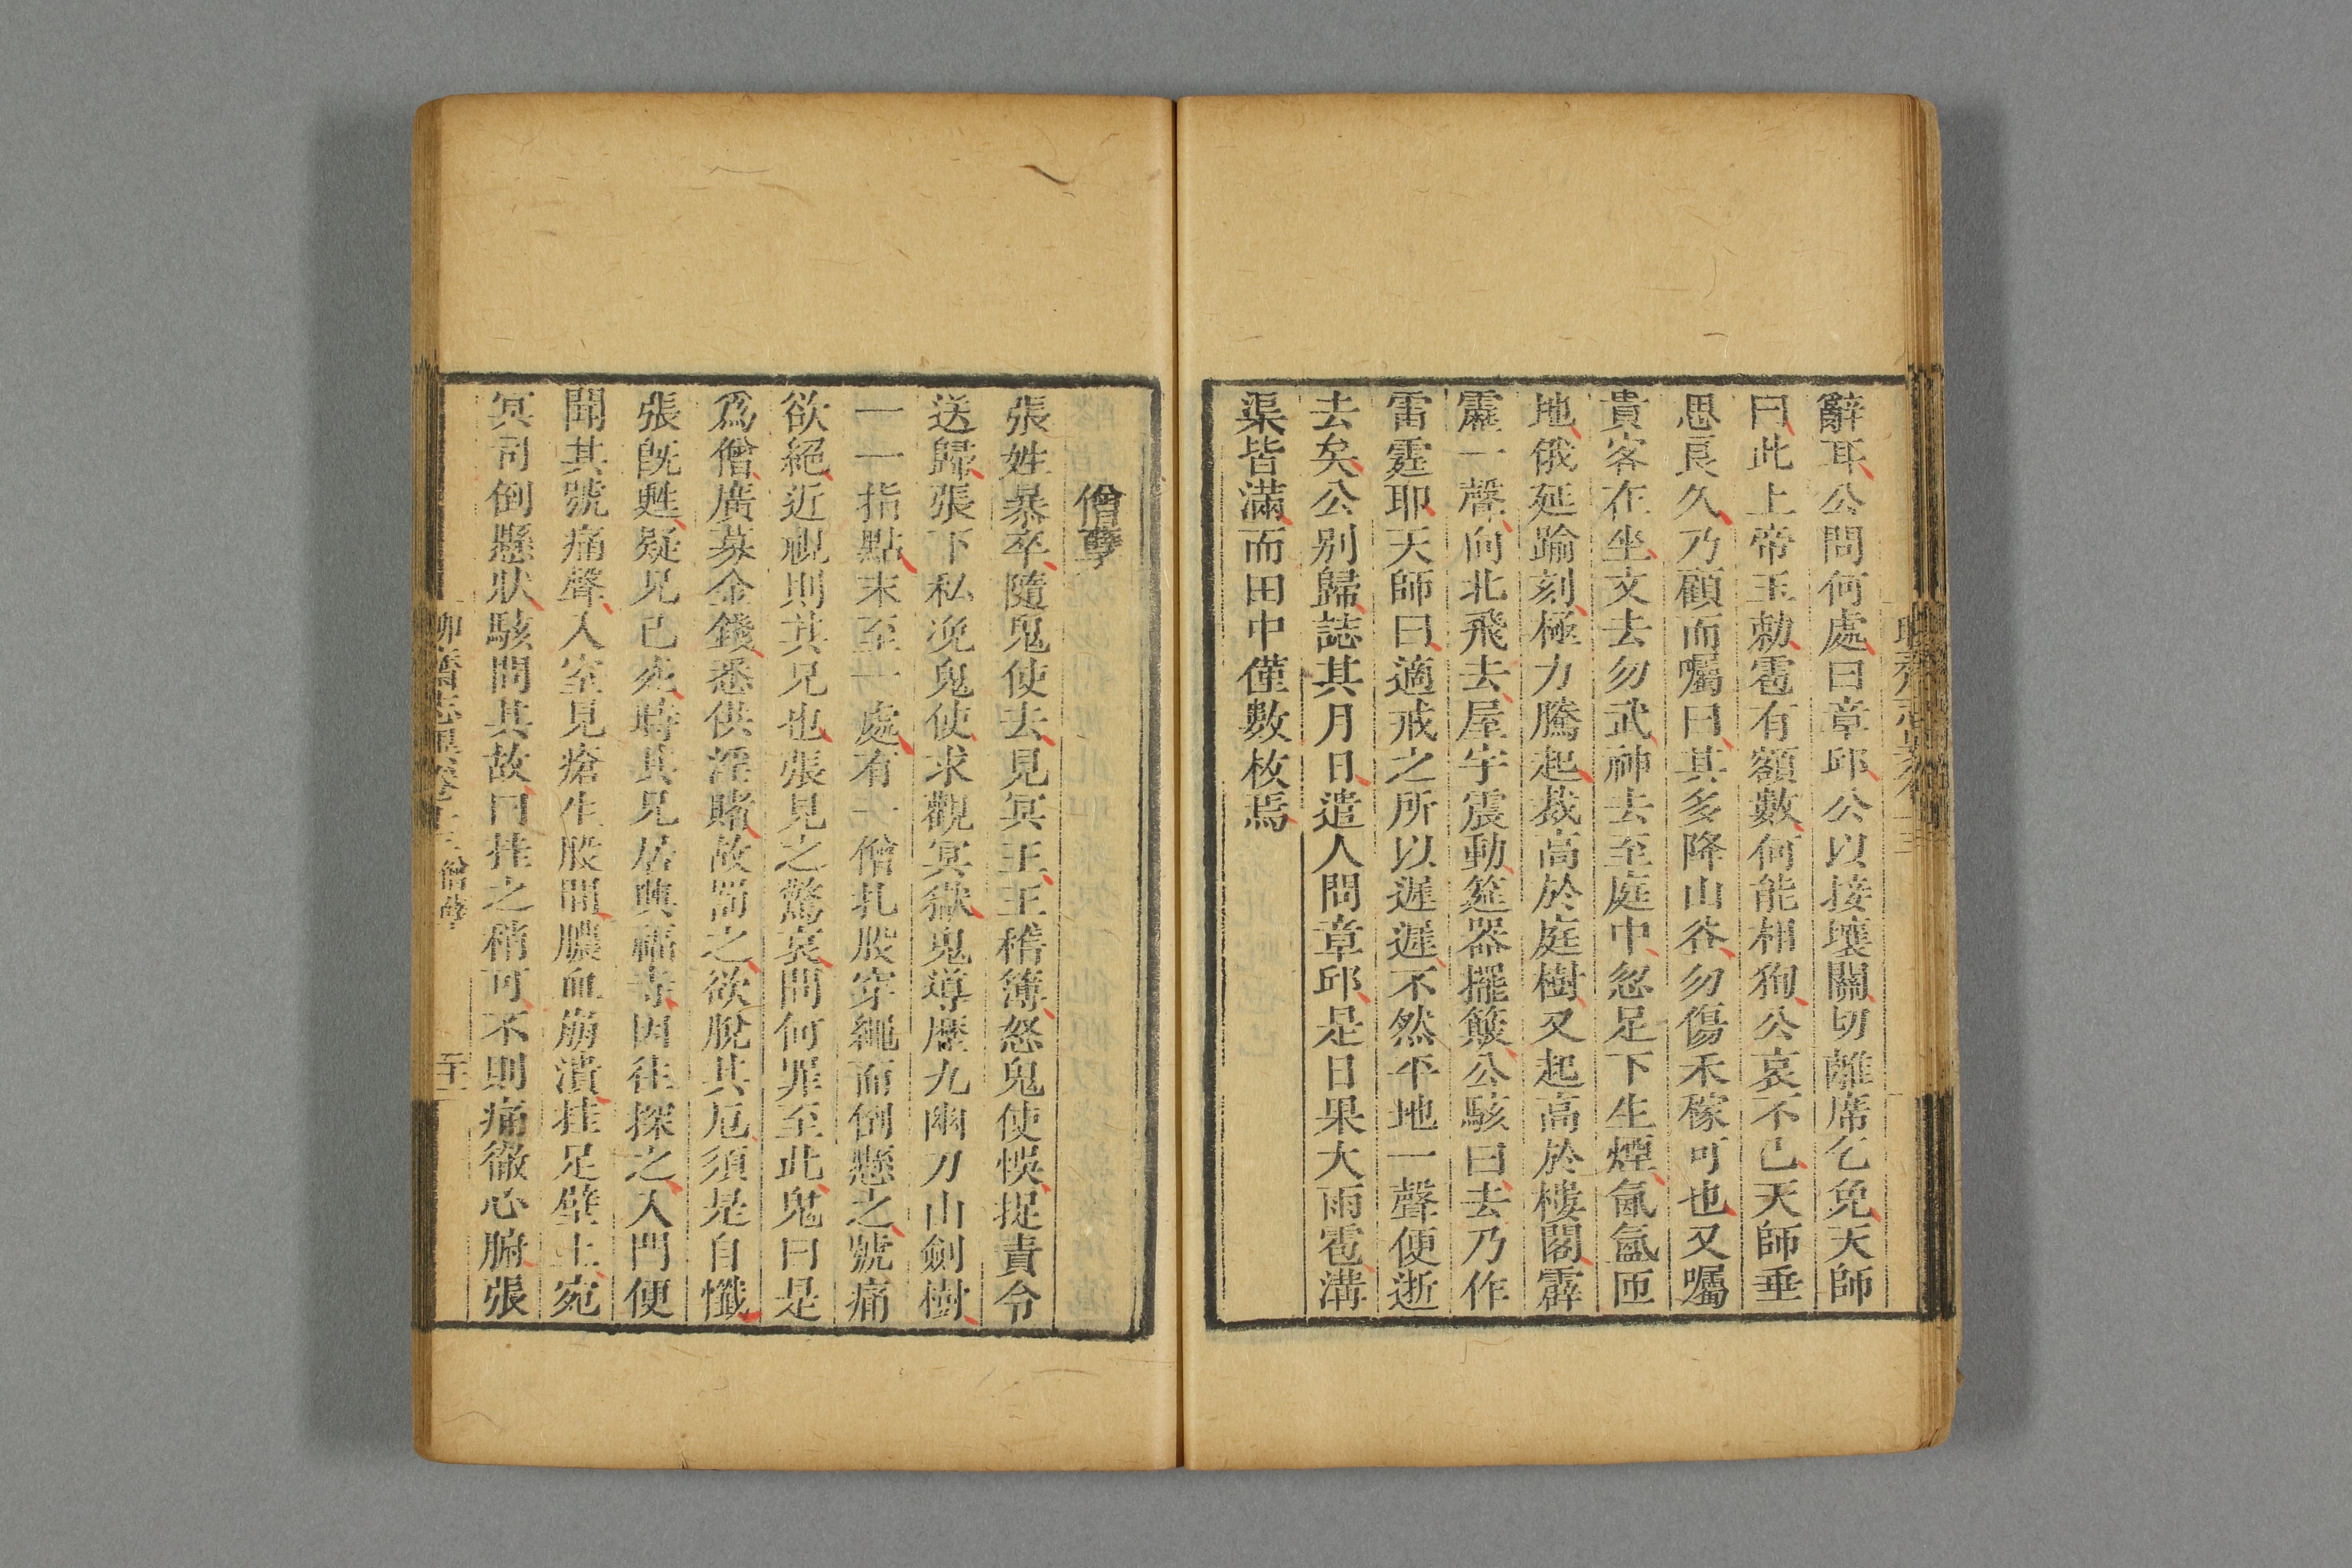 辭耳公問何處曰章邱公以接壤關切離席乞免天師
曰此上帝玉勅雹有額數何能相狥公哀不已天師垂
思良久乃顧而囑曰其多降山谷勿傷禾稼可也又囑
貴客在坐文去勿武神去至庭中忽足下生煙氤氳匝
地俄延踰刻極力騰起裁高於庭樹又起高於樓閣霹
靂一聲向北飛去屋宇震動筵器擺簸公駭曰去乃作
雷霆耶天師曰適戒之所以遲遲不然平地一聲便逝
去矣公别歸誌其月日遣人問章邱是日果大雨雹溝
渠皆滿而田中僅數枚焉
僧孽
張姓暴卒隨鬼使去見冥王王稽簿怒鬼使悞捉責令
送歸張下私浼鬼使求觀冥獄鬼導歷九幽刀山劍樹
一一指點末至一處有一僧扎股穿繩而倒懸之號痛
欲絕近視則其兄也張見之驚哀問何罪至此鬼曰是
爲僧廣募金錢悉供淫賭故罰之欲脫其厄須是自懺
張旣甦疑兄已死時其兄居興福寺因往探之入門便
聞其號痛聲入室見瘡生股間膿血崩潰挂足壁上宛
冥司倒懸狀駭問其故曰挂之稍可不則痛徹心腑張
聊齋志異卷十三 僧孽